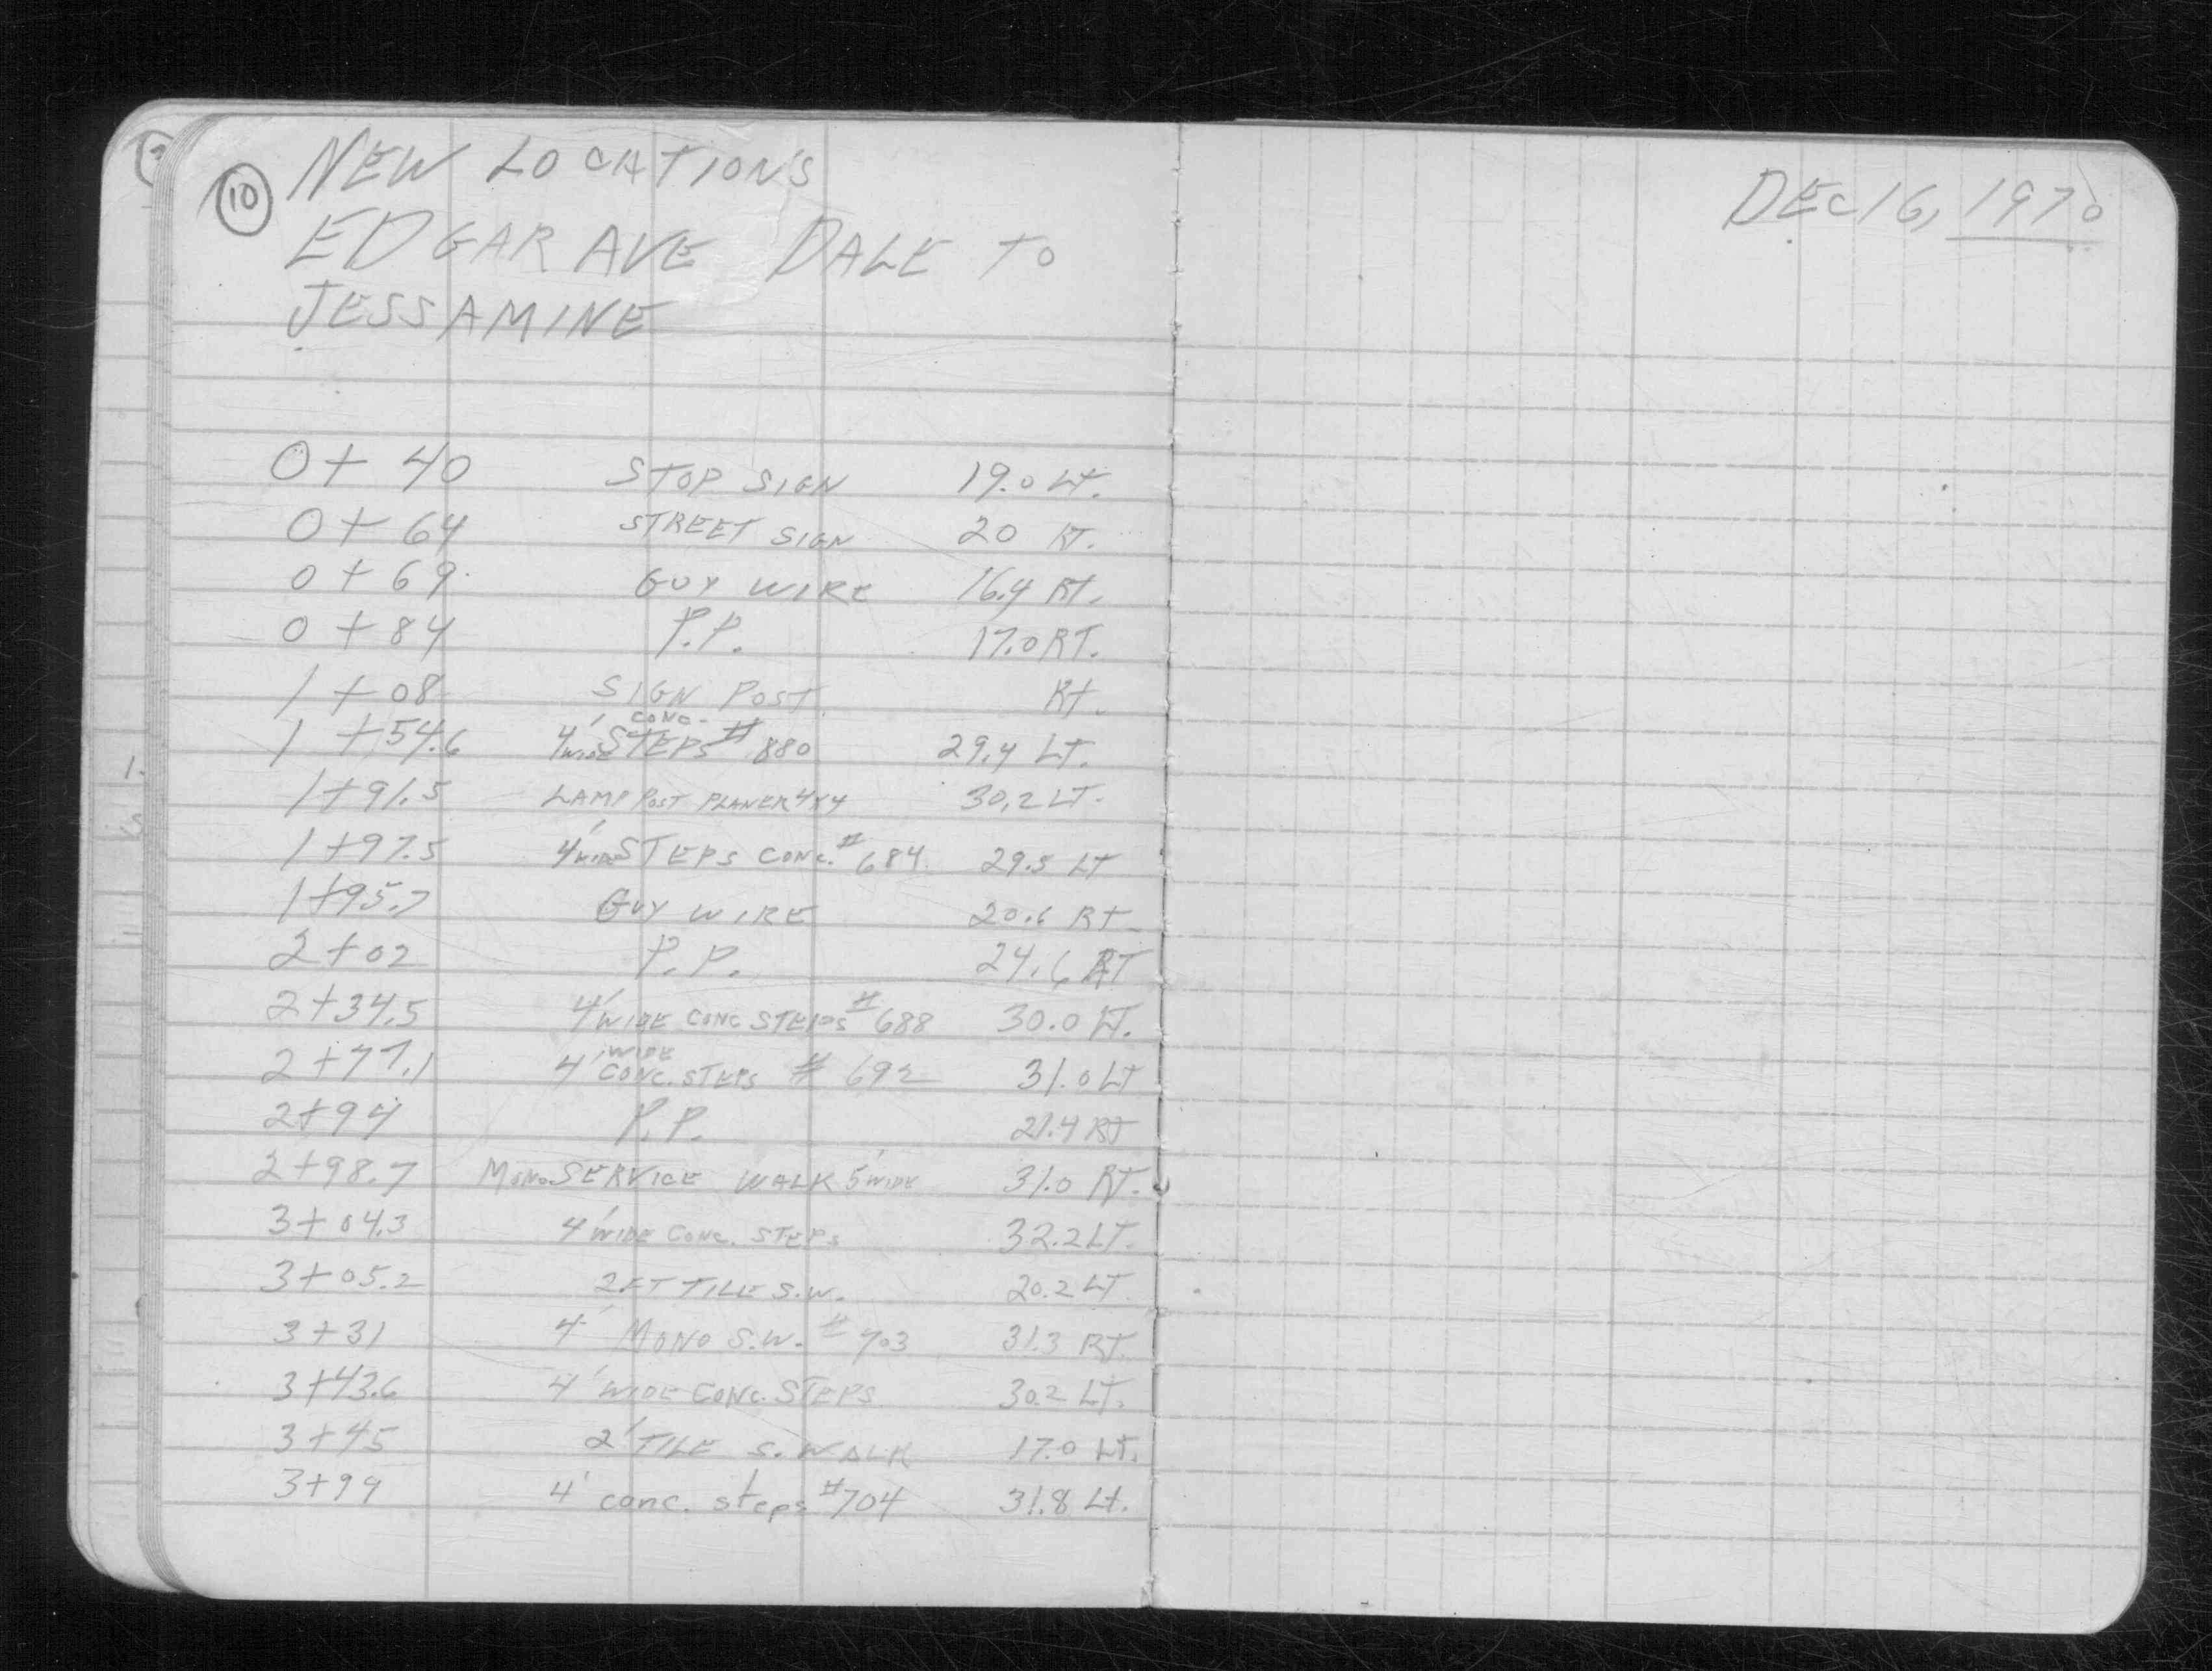 10
NEW LOCATION'S
EDGAR AVE DALE TO
JESSAMINE
DEC 16, 1970
0+40 STOP SIGN 19.0 LT.
0+64 STREET SIGN 20 RT.
0+69 GUY WIRE 16.4 RT.
0+84 P.P. 17.0 RT.
1+08 SIGN POST RT.
1+54.6 4' WIDE CONC. STEPS # 880 29.4 LT.
1+91.5 LAMP POST PLANER 4x4 30.2 LT.
1+97.5 4' WIDE STEPS CONC. # 684 29.5 LT
1+95.7 GUY WIRE 20.6 RT.
2+02 P.P. 24.6 RT
2+34.5 4' WIDE CONC STEPS # 688 30.0 LT.
2+77.1 4' WIDE CONC. STEPS # 692 31.0 LT
2+94 P.P. 21.4 RT
2+98.7 MONO. SERVICE WALK 5' WIDE 31.0 RT.
3+04.3 4' WIDE CONC. STEPS 32.2 LT.
3+05.2 2 FT TILE S.W. 20.2 LT.
3+31 4' MONO S.W. # 703 31.3 RT.
3+43.6 4' WIDE CONC. STEPS 30.2 LT.
3+45 2' TILE S. WALK 17.0 LT.
3+94 4' conc. steps #704 31.8 Lt.